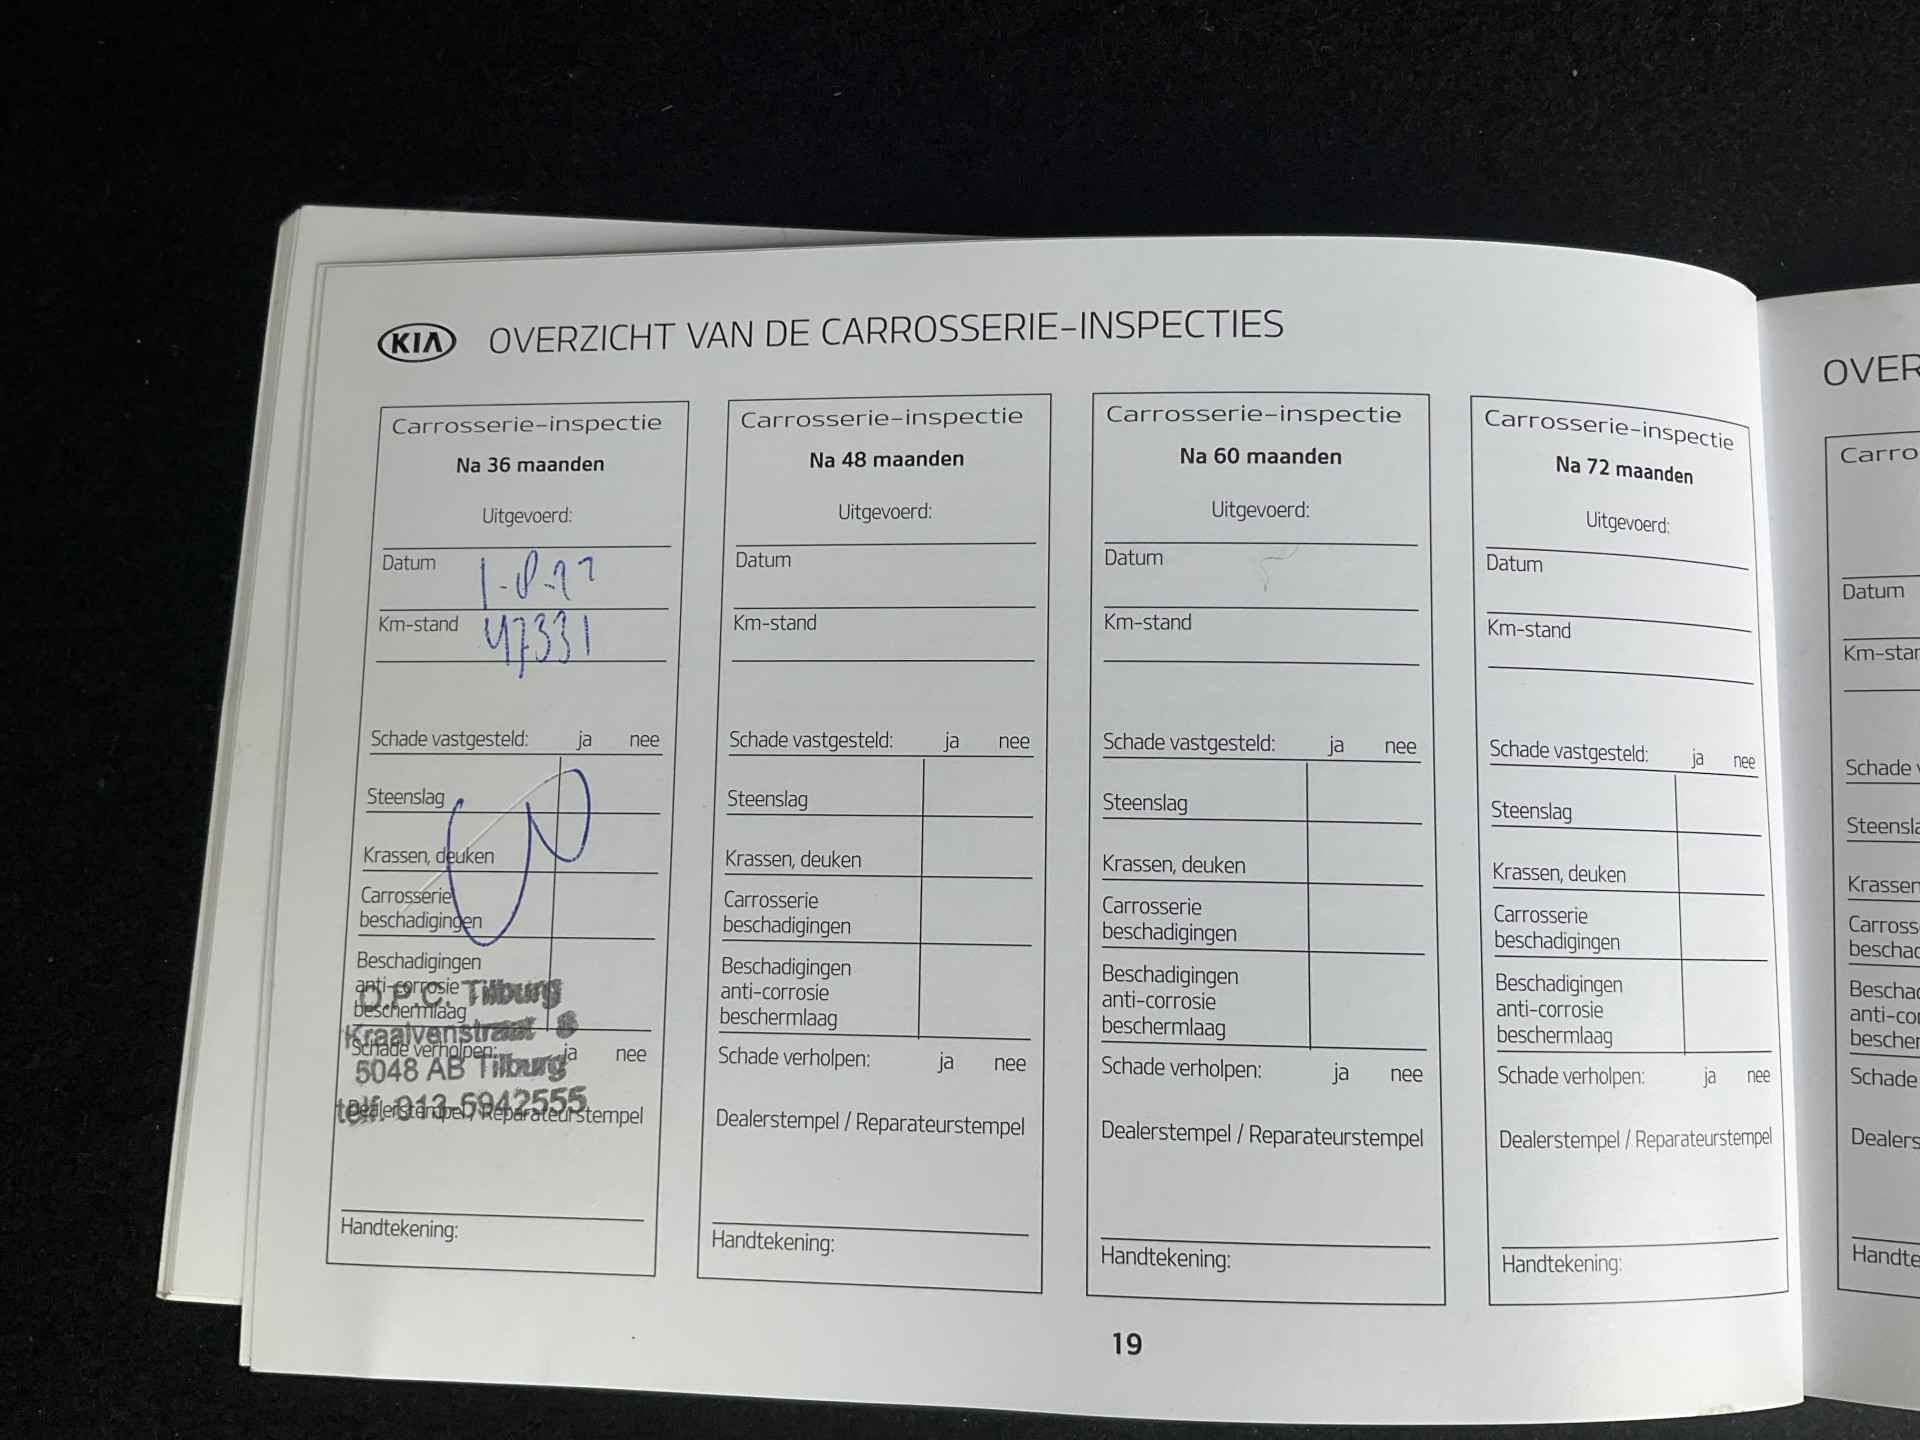 KIA OVERZICHT VAN DE CARROSSERIE-INSPECTIES
Carrosserie-inspectie
Na 36 maanden
Uitgevoerd:
Datum
Km-stand 47331
Schade vastgesteld: ja nee
Steenslag
Krassen, deuken
Carrosserie
beschadigingen
Beschadigingen
anti-corrosie
beschermlaag
O.P.C. Tilburg
Kraaivenstraat 8
5048 AB Tilburg
telf. 013-5942555
Schade verholpen: ja nee
Dealerstempel / Reparateurstempel
Handtekening:
Carrosserie-inspectie
Na 48 maanden
Uitgevoerd:
Datum
Km-stand
Schade vastgesteld: ja nee
Steenslag
Krassen, deuken
Carrosserie
beschadigingen
Beschadigingen
anti-corrosie
beschermlaag
Schade verholpen: ja nee
Dealerstempel / Reparateurstempel
Handtekening:
Carrosserie-inspectie
Na 60 maanden
Uitgevoerd:
Datum
Km-stand
Schade vastgesteld: ja nee
Steenslag
Krassen, deuken
Carrosserie
beschadigingen
Beschadigingen
anti-corrosie
beschermlaag
Schade verholpen: ja nee
Dealerstempel / Reparateurstempel
Handtekening:
Carrosserie-inspectie
Na 72 maanden
Uitgevoerd:
Datum
Km-stand
Schade vastgesteld: ja nee
Steenslag
Krassen, deuken
Carrosserie
beschadigingen
Beschadigingen
anti-corrosie
beschermlaag
Schade verholpen: ja nee
Dealerstempel / Reparateurstempel
Handtekening:
19
OVER
Carro
Datum
Km-star
Schade
Steensla
Krassen
Carross
beschad
Bescha
anti-co
bescher
Schade
Dealers
Handte